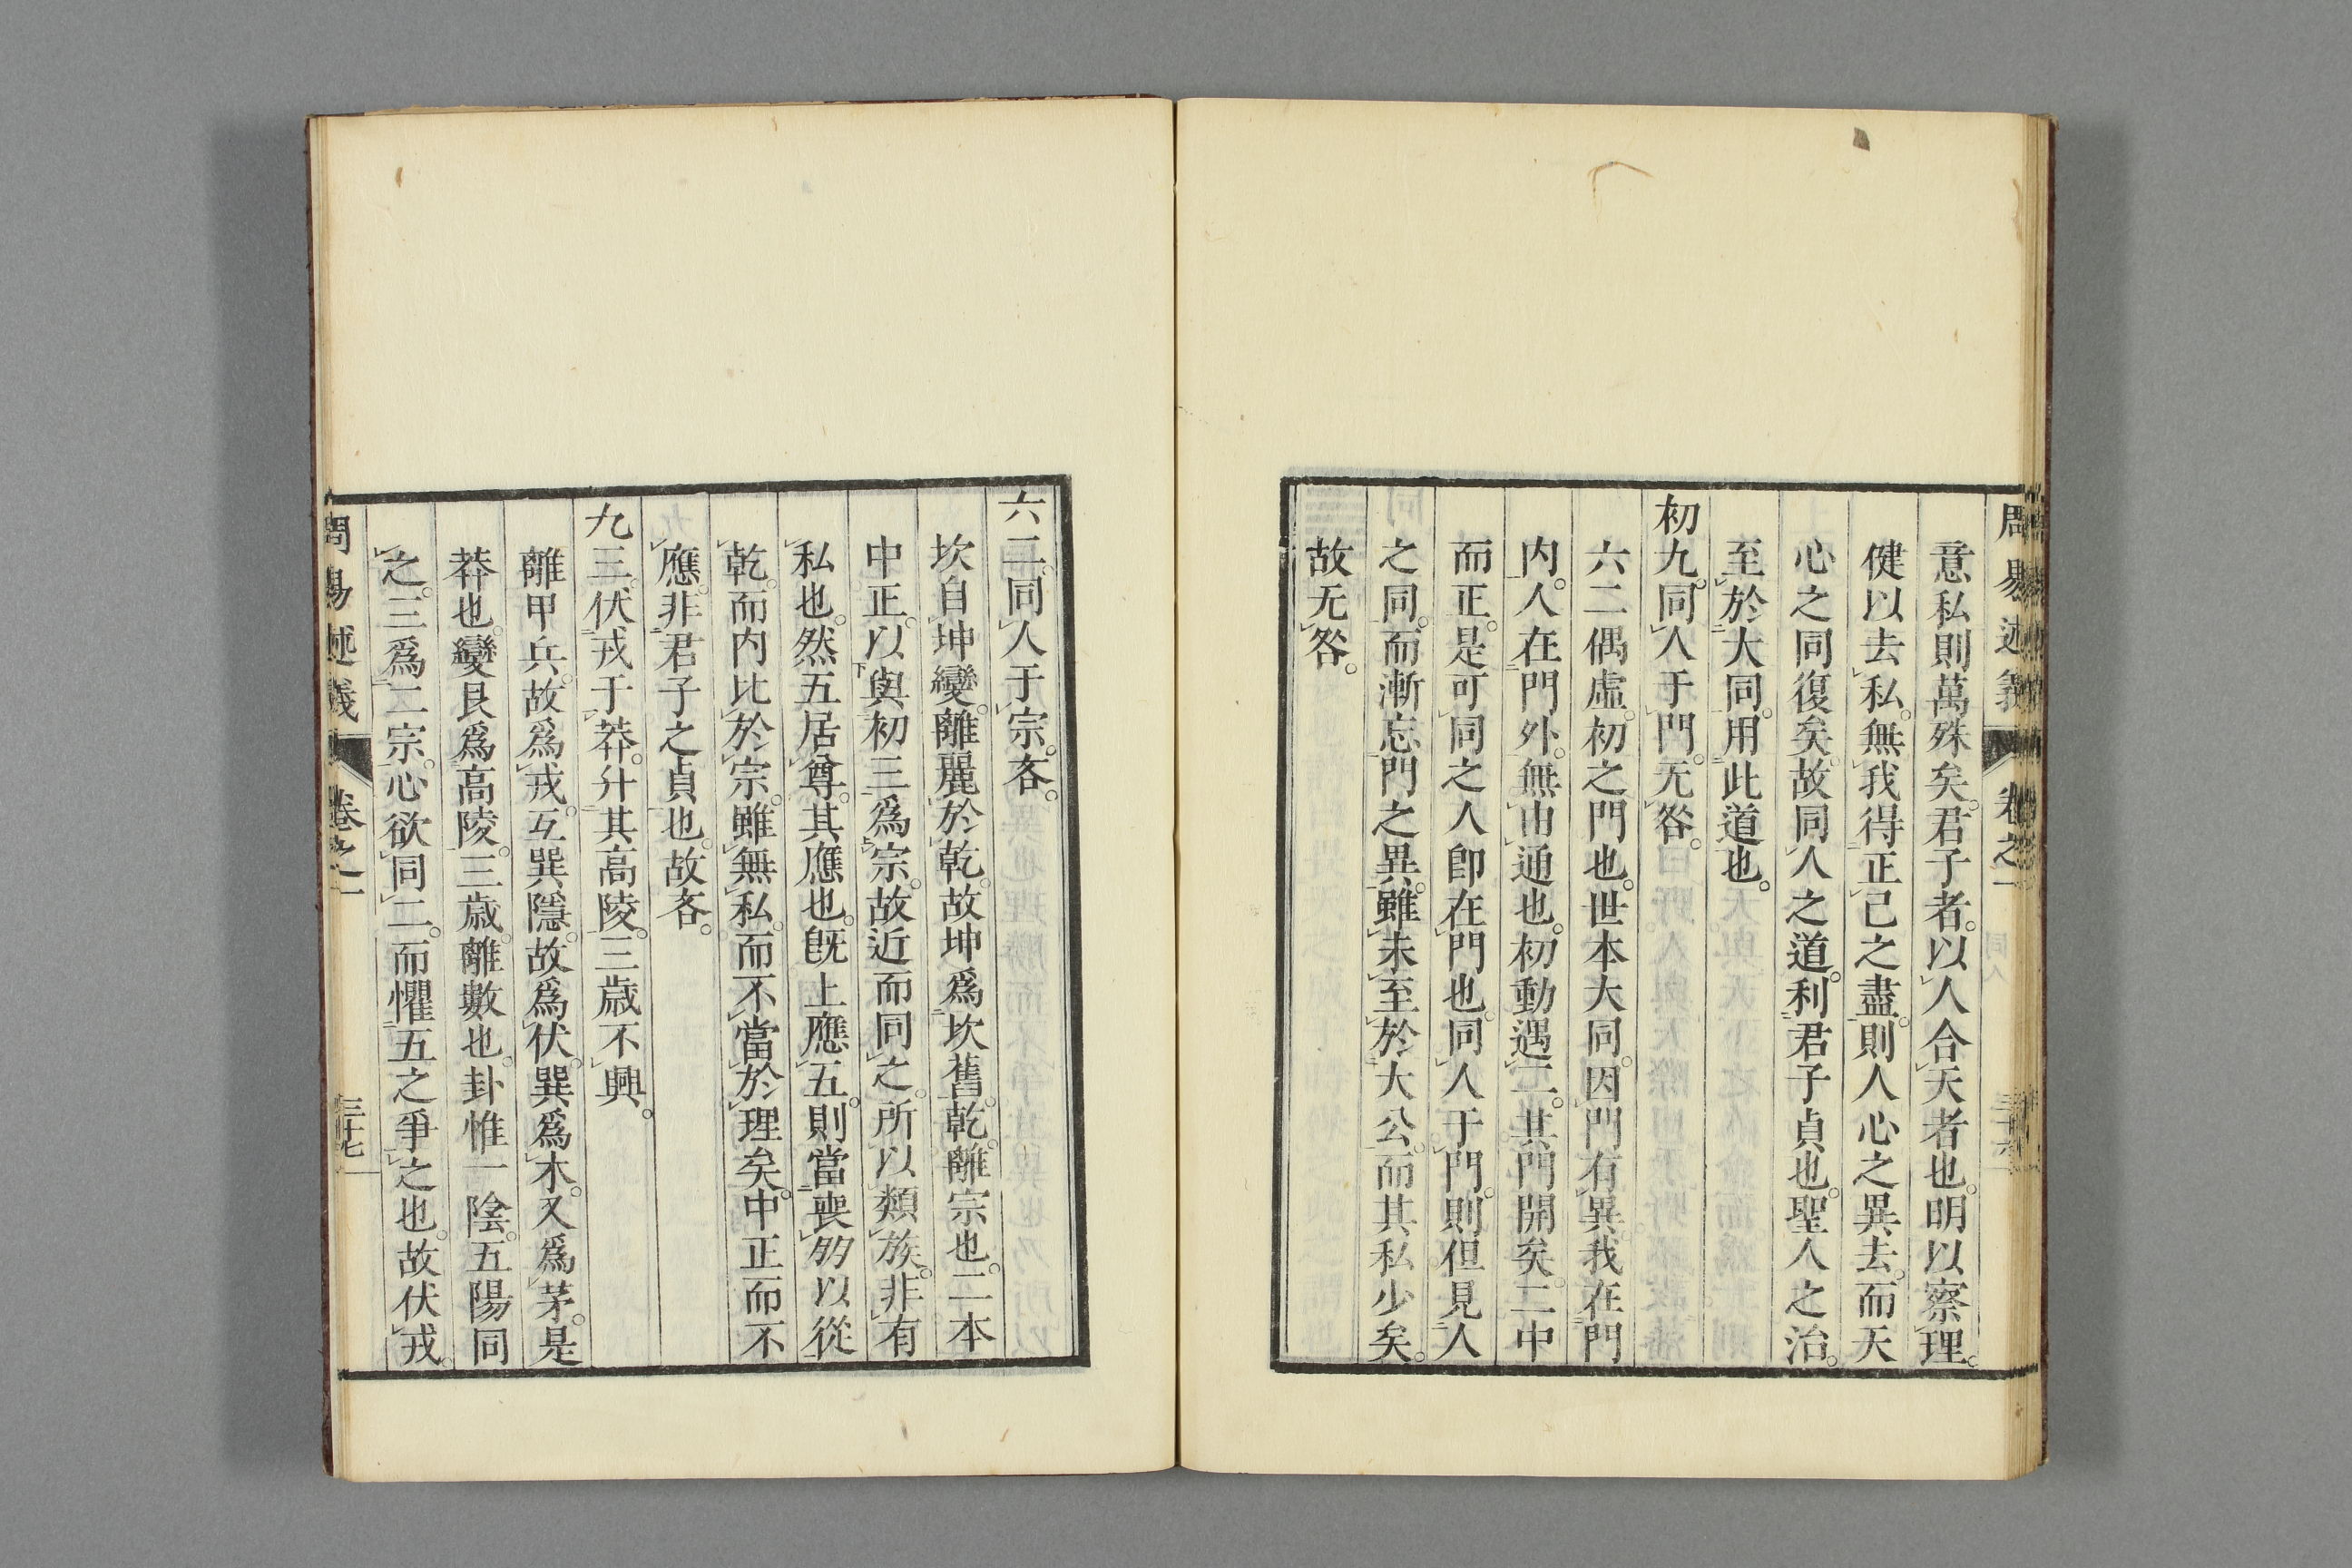 周易述義 卷之一
意私則萬殊矣。君子者。以人合天者也。明以察理。
健以去私。無我得正。己之盡。則人心之異去。而天
心之同復矣。故同人之道。利君子貞也。聖人之治。
至於大同。用此道也。
初九。同人于門。无咎。
六二偶虛。初之門也。世本大同。因門有異。我在門
内。人在門外。無由通也。初動遇二。其門開矣。二中
而正。是可同之人卽在門也。同人于門。則但見人
之同。而漸忘門之異。雖未至於大公。而其私少矣。
故无咎。
六二。同人于宗。吝。
坎自坤變。離麗於乾。故坤爲坎舊。乾。離宗也。二本
中正。以與初三爲宗。故近而同之。所以類族。非有
私也。然五居尊。其應也。旣上應五。則當喪朋以從
乾。而内比於宗。雖無私。而不當於理矣。中正而不
應。非君子之貞也。故吝。
九三。伏戎于莽。升其高陵。三歲不興。
離甲兵。故爲戎。互巽隱。故爲伏。巽爲木。又爲茅。是
莽也。變艮爲高陵。三歲。離數也。卦惟一陰。五陽同
之。三爲二宗。心欲同二。而懼五之爭之也。故伏戎。
周易述義 卷之一 三十七